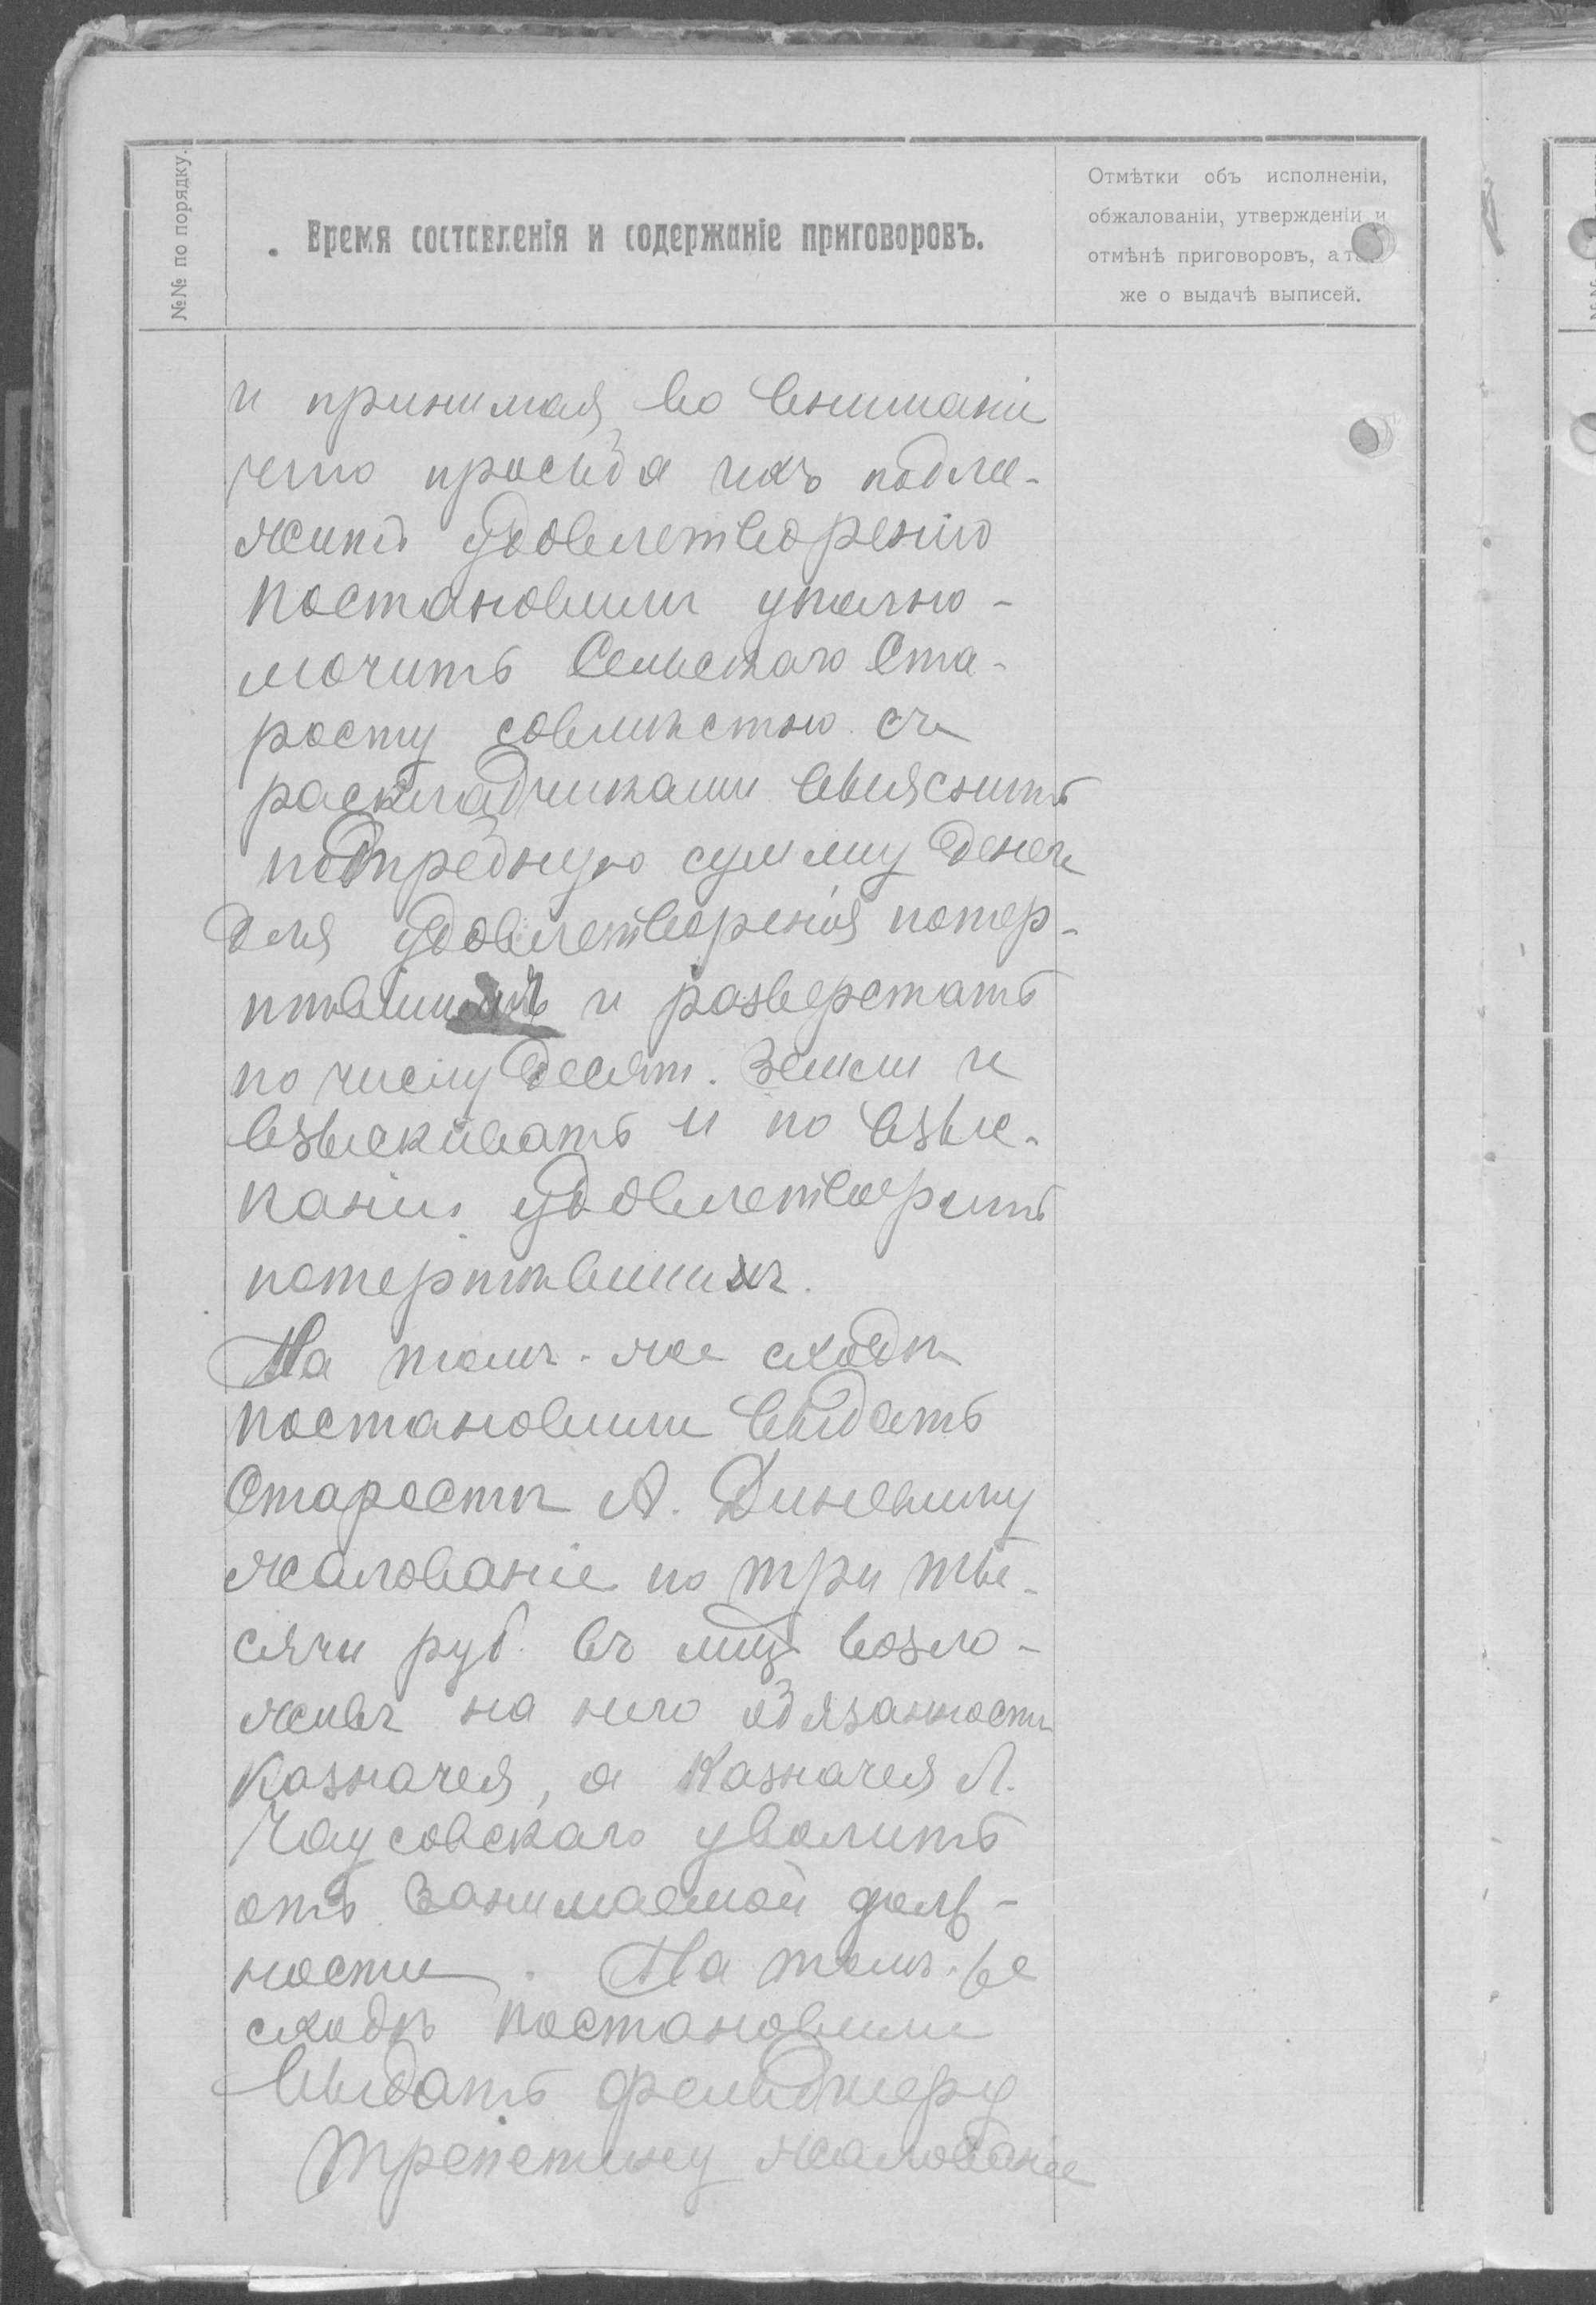 №№ по порядку.
Время составленія и содержаніе приговоровъ.
Отмѣтки объ исполненіи,
обжалованіи, утвержденіи и
отмѣнѣ приговоровъ, а так
же о выдачѣ выписей.
и принимая во вниманіе
что просьба ихъ подле-
житъ удовлетворенію
постановили уполно-
мочить Сельскаго Ста-
росту совмѣстно съ
раскладчиками выяснить
сумму денегъ
для удовлетворенія потер-
пѣвшимъ и разверстать
по числу десят. земли и
взыскивать и по взыс-
каніи удовлетворить
потерпѣвшихъ.
На томъ-же сходѣ
постановили выдать
Старостѣ А. Диневичу
жалованіе по три ты-
сячи руб. въ мцъ возло-
живъ на него обязанности
Казначея, а Казначея Л.
Чаусовскаго уволить
отъ занимаемой долж-
ности. На томъ-же
сходѣ постановили
выдать фельдшеру
жалованіе